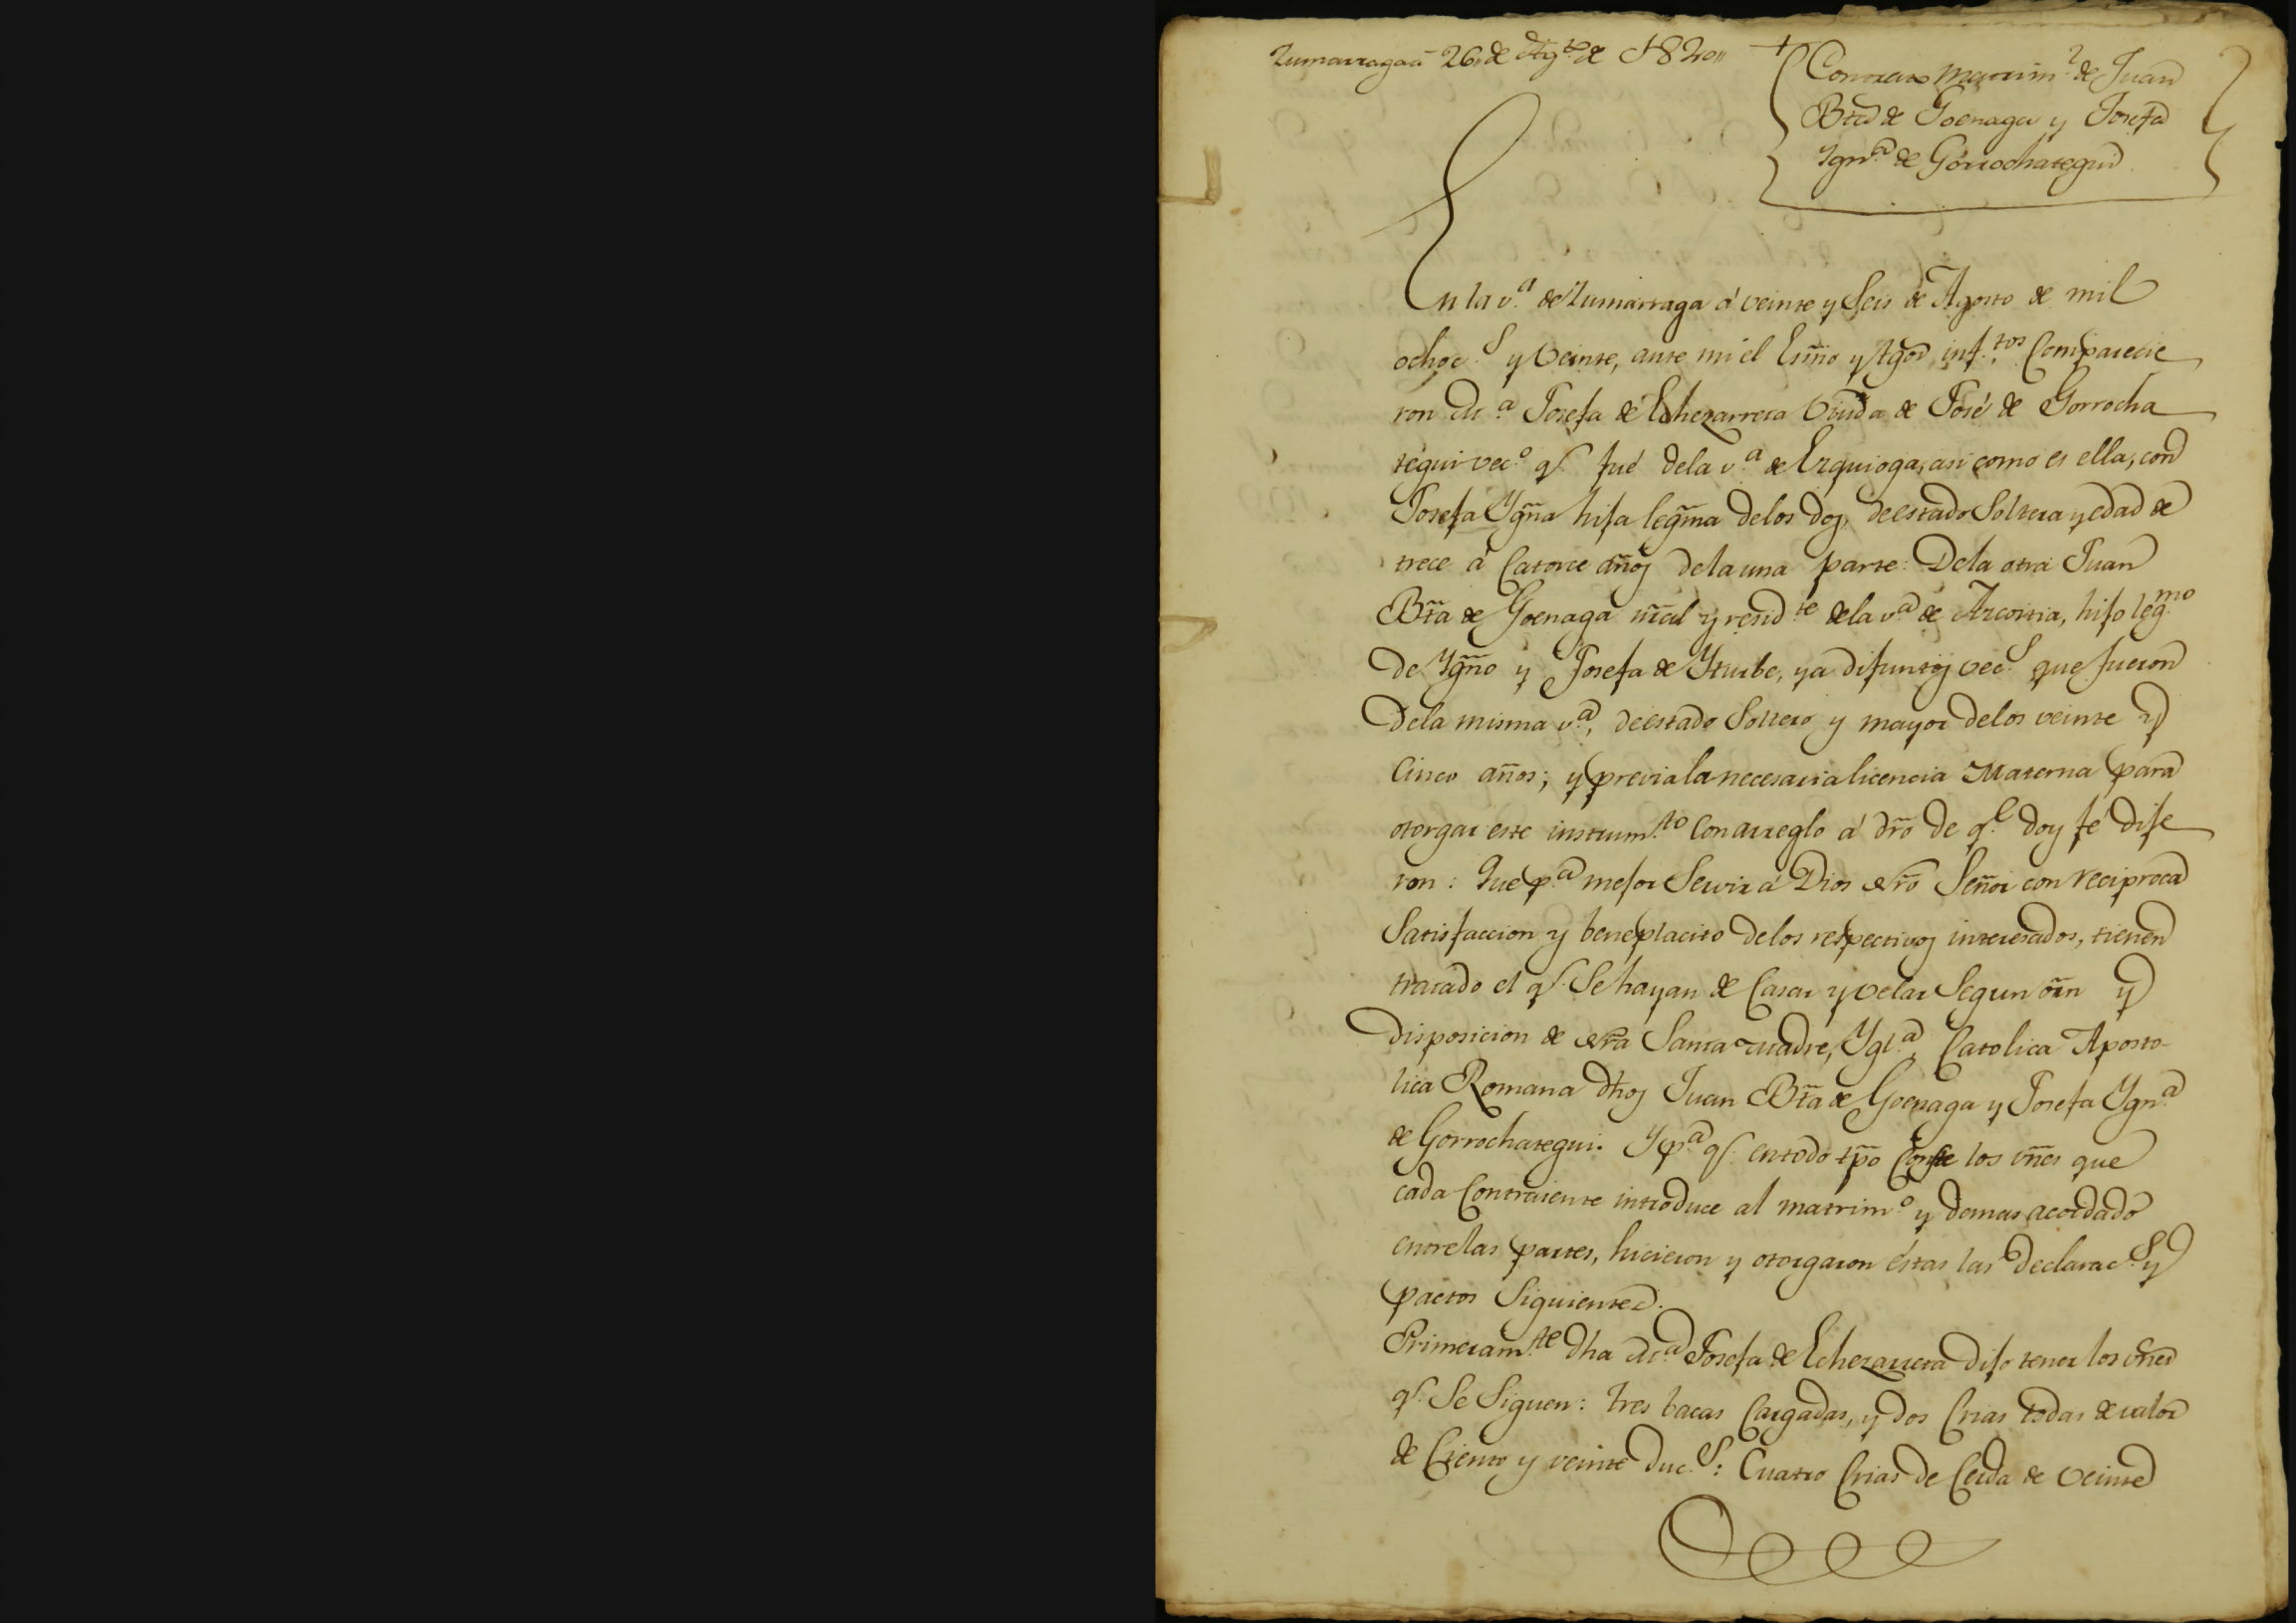 Zumarraga á 26,, de Agto de 1820,,
Contrato Matrimo de Juan
Bta de Goenaga y Josefa
Ygna de Gorrochategui
En la va de Zumarraga á veinte y Seis de Agosto de mil
ochocs y Veinte, ante mi el Esno y tgos inftos Comparecie
ron Ma Josefa de Echezarreta Viuda de José de Gorrocha
tegui veco qe fué dela va de Ezquioga, asi como es ella, con
Josefa Ygña hija legma delos dos, deestado Soltera y edad de
trece á Catorce años delauna parte: Dela otra Juan
Bta de Goenaga nral y residte dela va de Azcoitia, hijo legmo
de Ygño y Josefa de Yturbe, ya difuntos vecs que fueron
Dela misma va, deestado Soltero y mayor delos veinte y
Cinco años; y previa la necesaria licencia Materna para
otorgar este instrumto Con arreglo á dro de qe doy fé dije
ron: Que pa mejor Servir á Dios Nro Señor con reciproca
Satisfaccion y beneplacito delos respectivos interesados, tienen
tratado el qe Se hayan de Casar y velar Segun orn y
disposicion de Nra Santa Madre, Ygla, Catolica Aposto-
lica Romana dhos Juan Bta de Goenaga y Josefa Ygna
de Gorrochategui. Y pa qe entodo tpo Conste los vnes que
cada Contraiente introduce al matrimo y demas acordado
entrelas partes, hicieron y otorgaron éstas las declaracs y
pactos Siguientes.
Primeramte dha Ma Josefa de Echezarreta dijo tener los vnes
qe Se Siguen: tres bacas Cargadas, y dos Crias todas de valor
de Ciento y veinte Ducs: Cuatro Crias de Cerda de Veinte